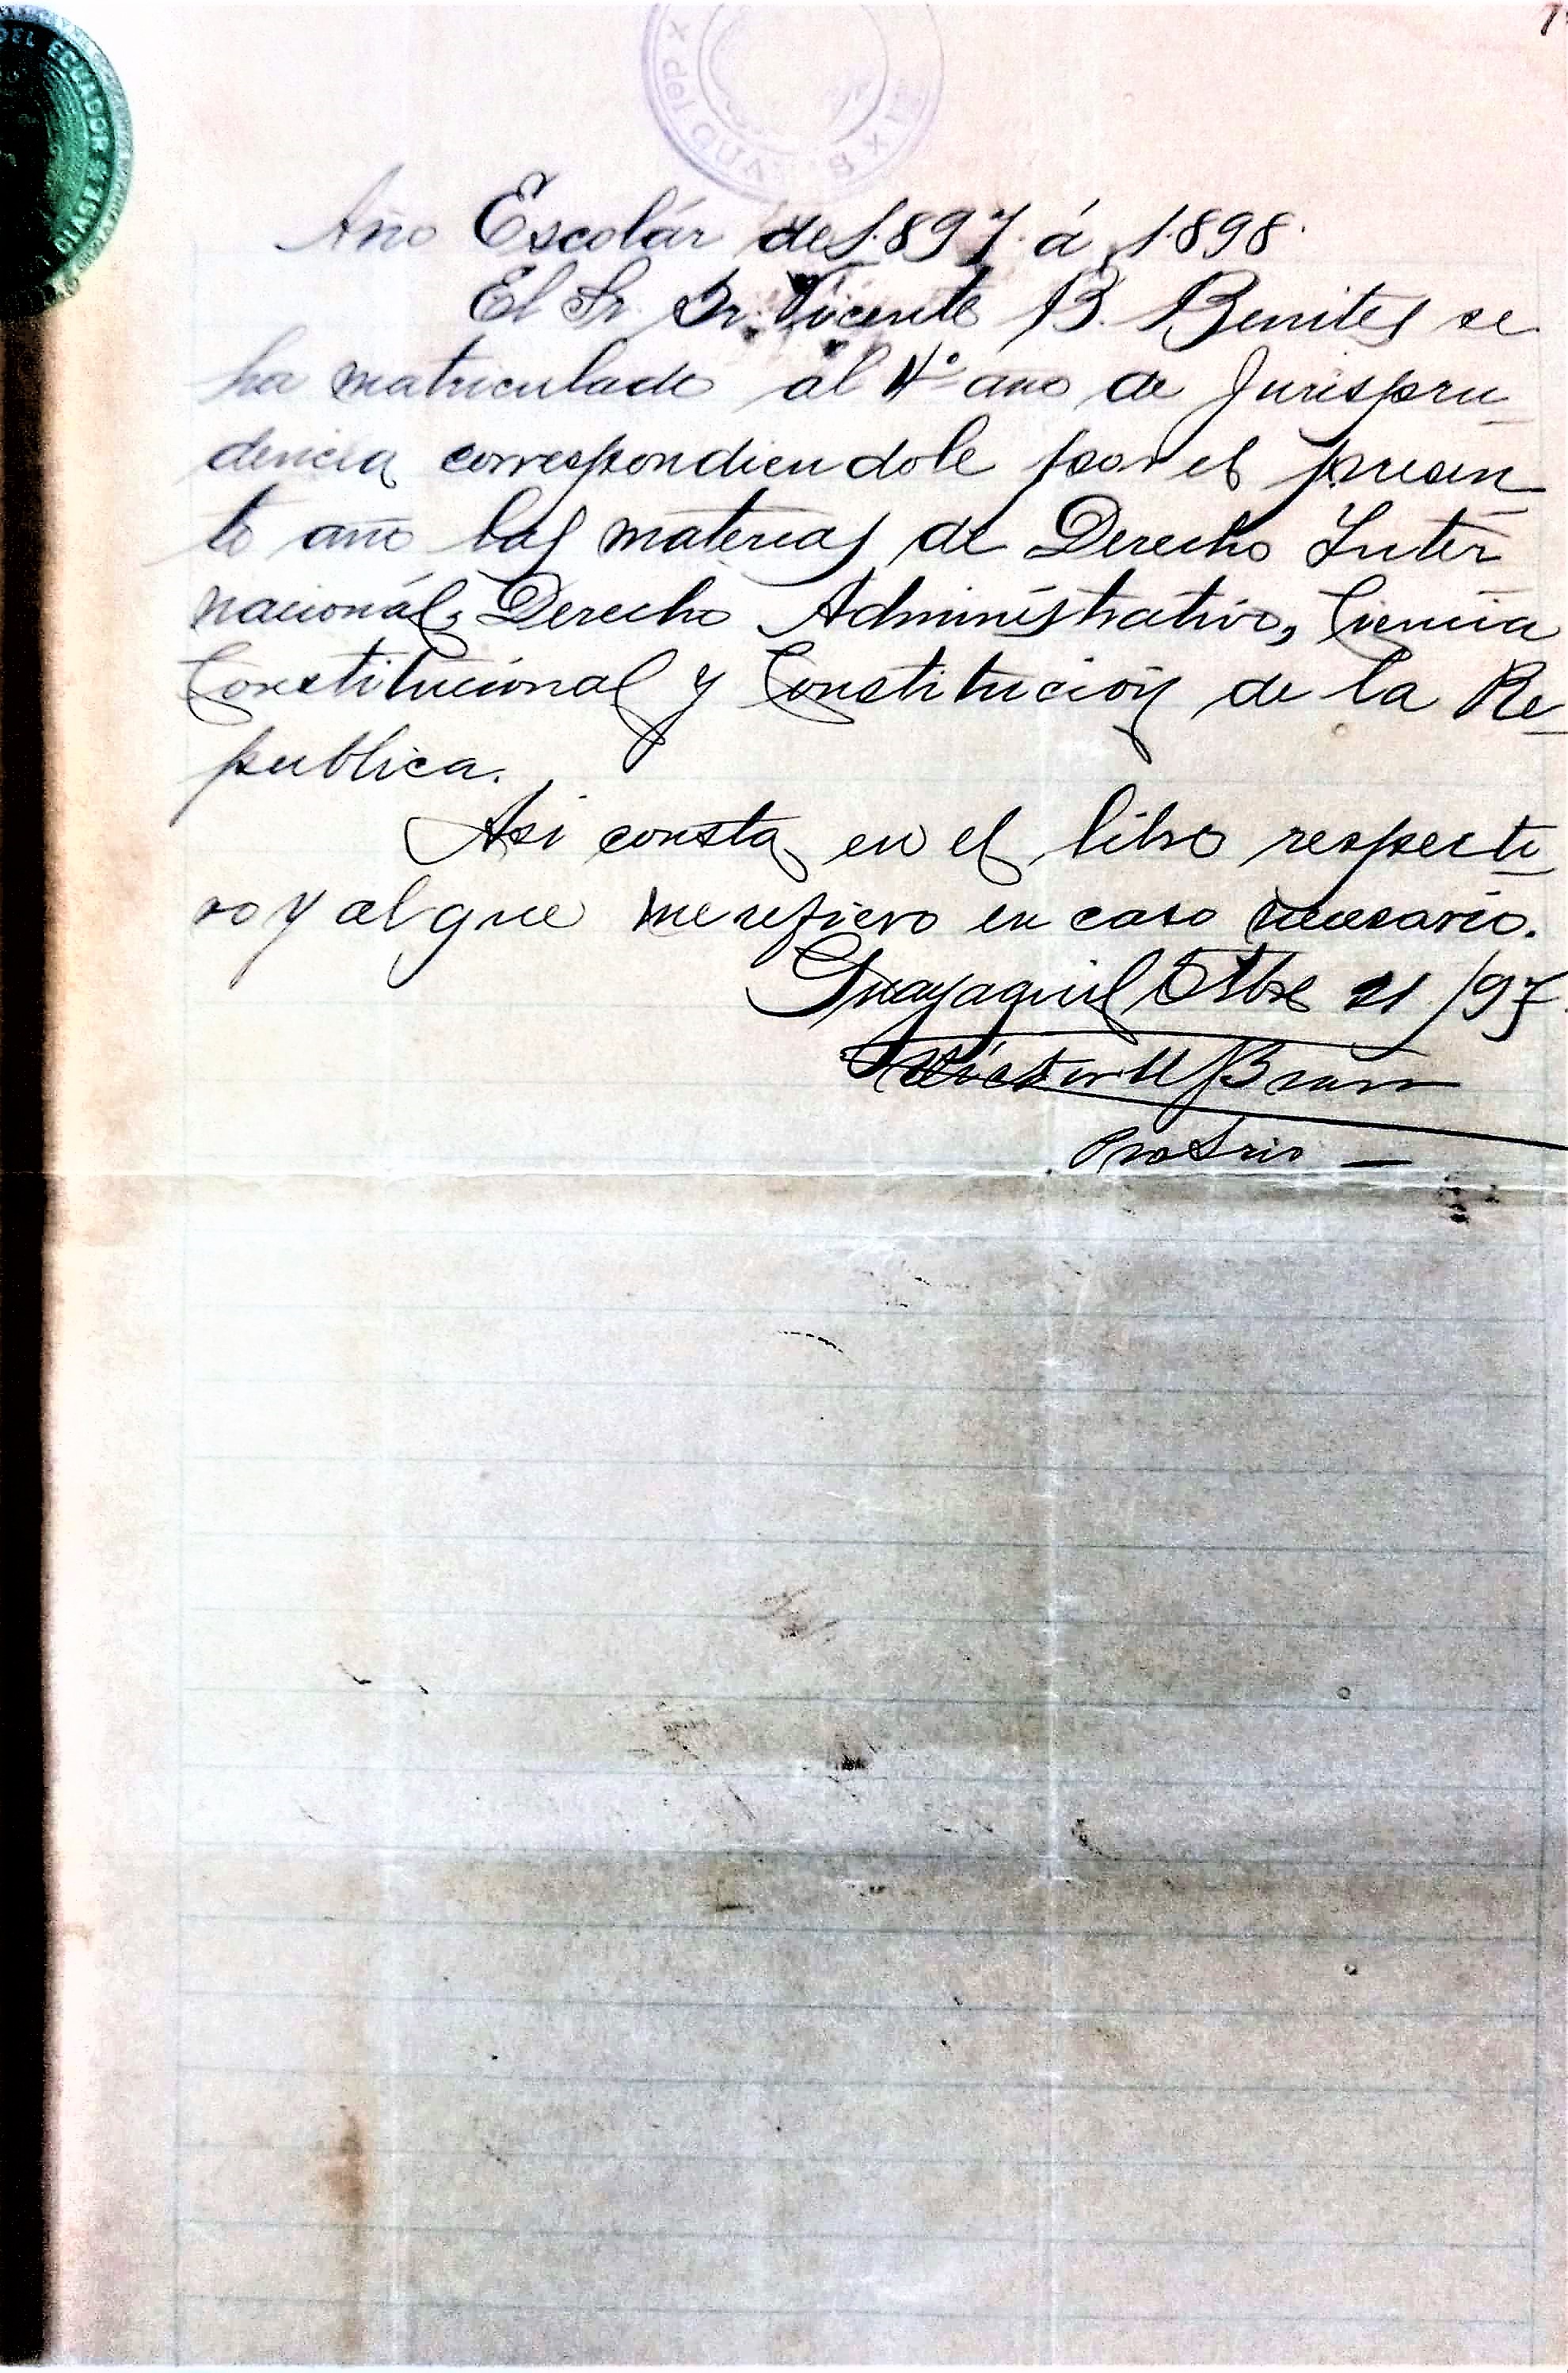 DEL ECUADOR
x del GUA
Año Escolár de 1.897. á 1.898.
El Sr. Dr. Vicente B. Benites se
ha matriculado al 4º año de Jurispru
dencia correspondiendole por el presen
te año las materias de Derecho Inter
nacionál, Derecho Administrativo, Ciencia
Constitucional y Constitución de la Re
publica.
Asi consta en el libro respecti
vo y al que me refiero en caso necesario.
Guayaquil Otbre 21/97
Prosrio